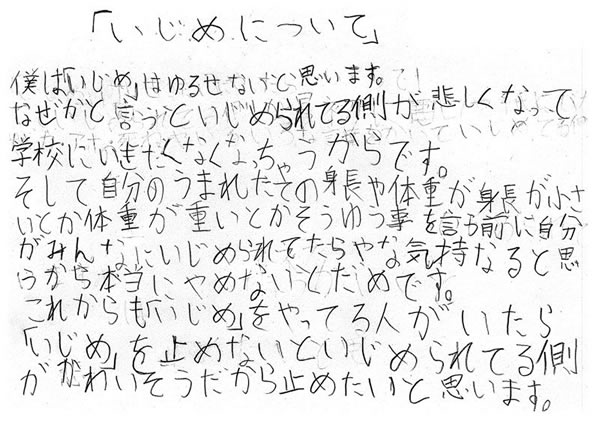 「いじめについて」
僕は「いじめ」はゆるせないと思います。
なぜかと言うといじめられてる側が悲しくなって
学校にいきたくなくなっちゃうからです。
そして自分のうまれたての身長や体重が身長が小さ
いとか体重が重いとかそうゆう事を言う前に自分
がみんなにいじめられてたらやな気持なると思
うから本当にやめないとだめです。
これからも「いじめ」をやってる人がいたら
「いじめ」を止めないといじめられてる側
がかわいそうだから止めたいと思います。